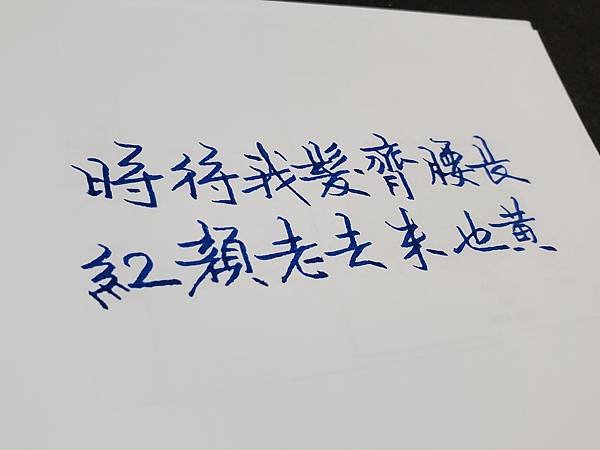 時待我髮齊腰長
紅顏老去来也黃